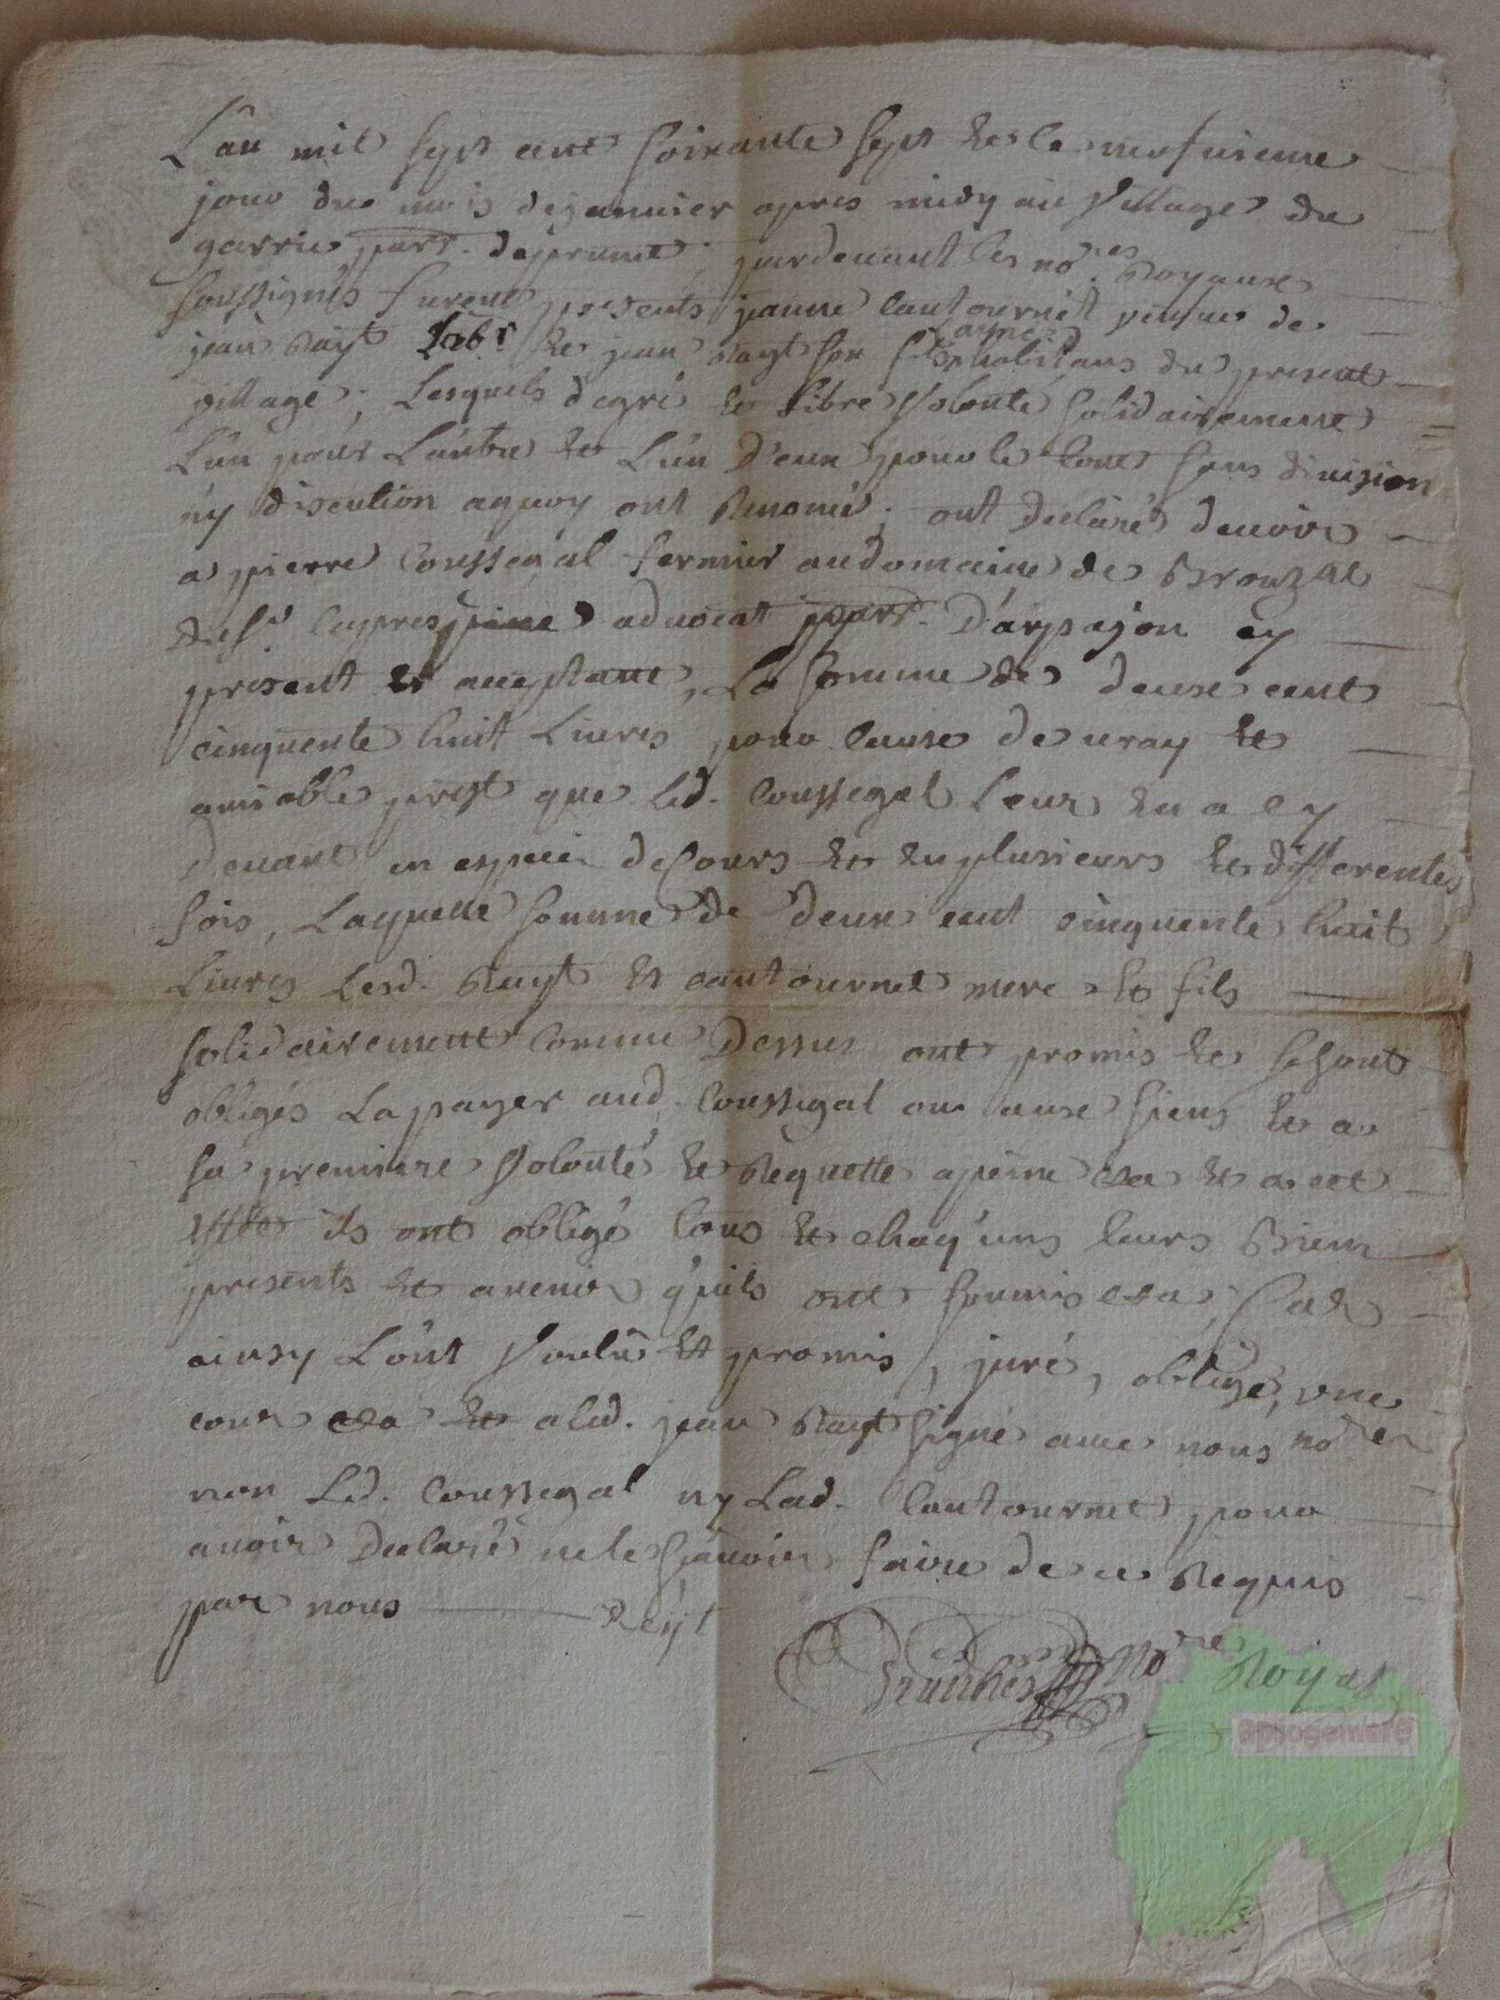 L'an mil sept cent soixante sept et le neufvieme
jour du mois de janvier apres midy au village du
garric parr. de prunet, pardevant les no.res Royaux
soussignés furent presents jeanne Cantournet veuve de
jean Rayt lab.r et jean Rayt son fils ayné habitans du present
village, Lesquels de gré et libre volonté solidairement
L'un pour L'autre et L'un d'eux pour le tout sans division
ny discution a quoy ont Renoncé; ont declaré devoir
a pierre Coussegal fermier au domaine de Brouzac
du s.r Lapres advocat parr. D'arpajon cy
present et acceptant, La somme de deux cent
cinquente huit Livres pour cause de vray et
amiable prest que Led. Coussegal Leur en a cy
devant en espece de cours et en plusieurs et differentes
fois, Laquelle somme de deux cent cinquente huit
Livres Lesd. Rayt et Cantournet mere et fils
solidairement comme Dessus ont promis et se sont
obligés La payer aud. Coussegal ou aux siens et a
sa premiere volonté et Requette a peine &a et a cet
effet ils ont obligé tous et chaq'uns leurs Biens
presents et avenir qu'ils ont soumis &a, Car
ainsy L'ont voulu et promis, juré, obligé, une
cour &a et a led. jean Rayt signé avec nous no.re
non Led. Coussegal ny Lad. Cantournet pour
avoir Declaré ne le sçavoir faire de ce Requis
par nous Reyt
Bruiches no.re Royal
apsogemere